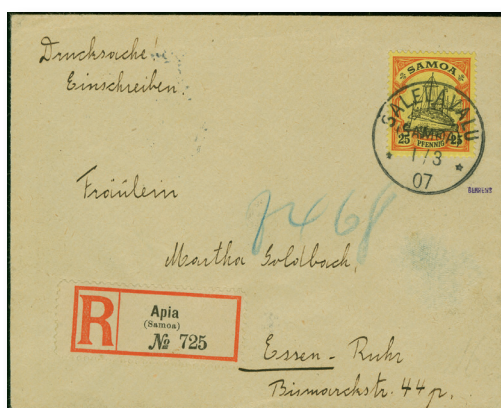 Drucksache
Einschreiben.
SAMOA
25 PFENNIG 25
SALELAVALU
SAMOA
* 1/3 *
07
BEHRENS
Fräulein
7468
Martha Goldbach,
R
Apia
(Samoa)
№ 725
Essen-Ruhr
Bismarckstr. 44 p.